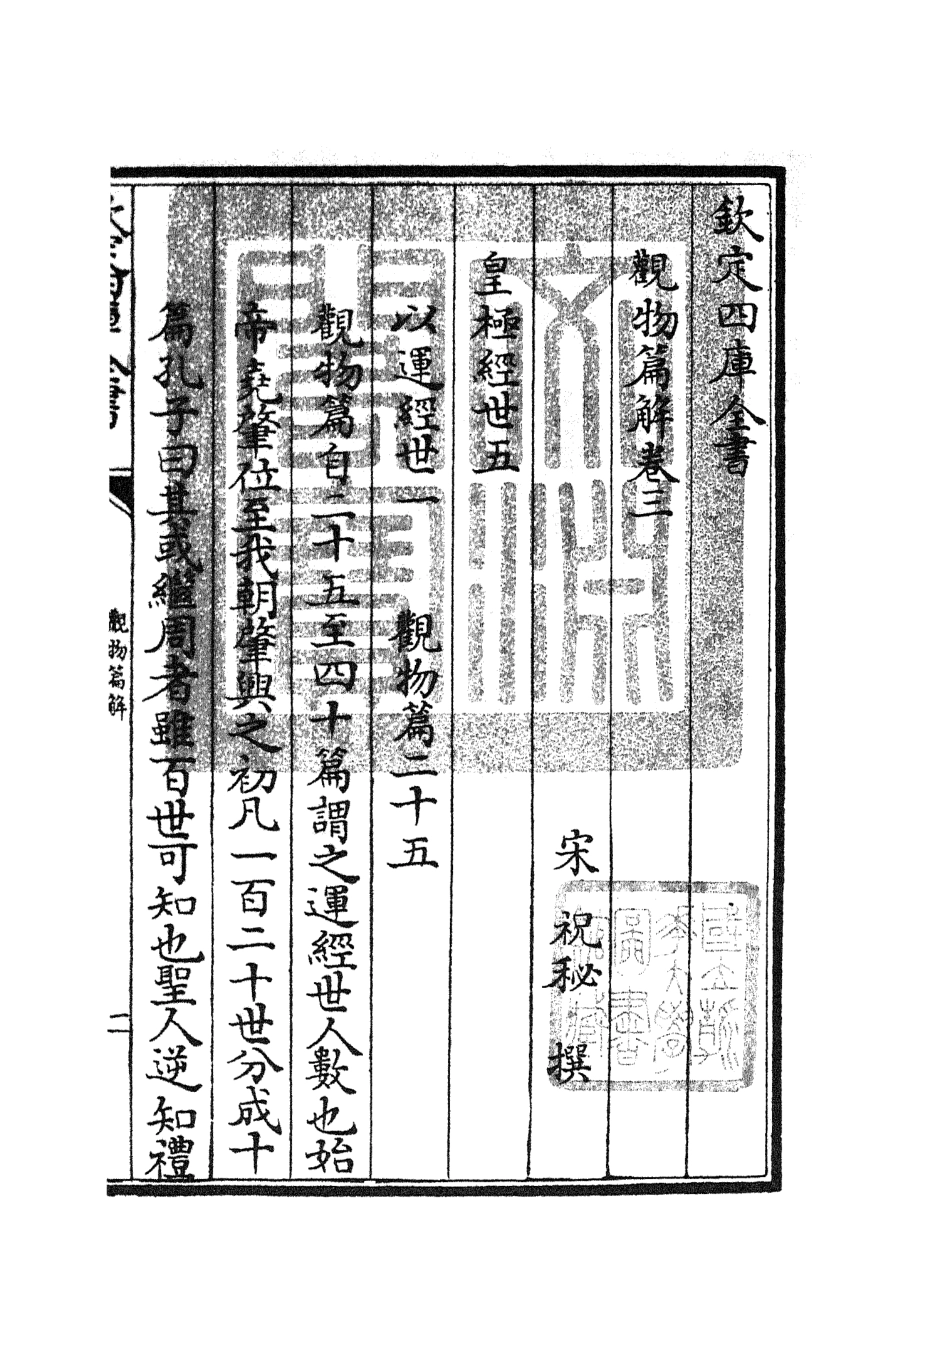 欽定四庫全書
觀物篇解卷三
宋 祝秘 撰
皇極經世五
以運經世一 觀物篇二十五
觀物篇自二十五至四十篇謂之運經世人數也始
帝堯肇位至我朝肇興之初凡一百二十世分成十
篇孔子曰其或繼周者雖百世可知也聖人逆知禮
觀物篇解
二